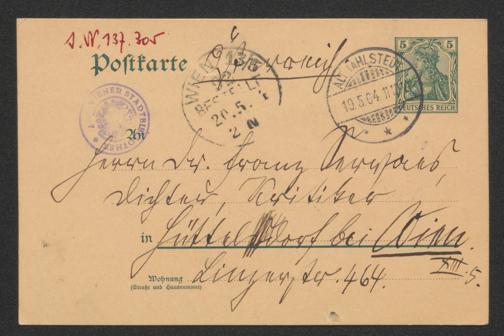 J.N. 137.305
Postkarte
Österreich
5 5
DEUTSCHES REICH
WIEN
BESTELLT
20.5.
2 N
ALT RAHLSTEDT
19.5.04. 11-12
An
Herrn Dr. Franz Servaes,
Dichter, Kritiker
in Hütteldorf bei Wien.
XIII. 5.
Linzerstr. 464.
Wohnung
(Straße und Hausnummer)